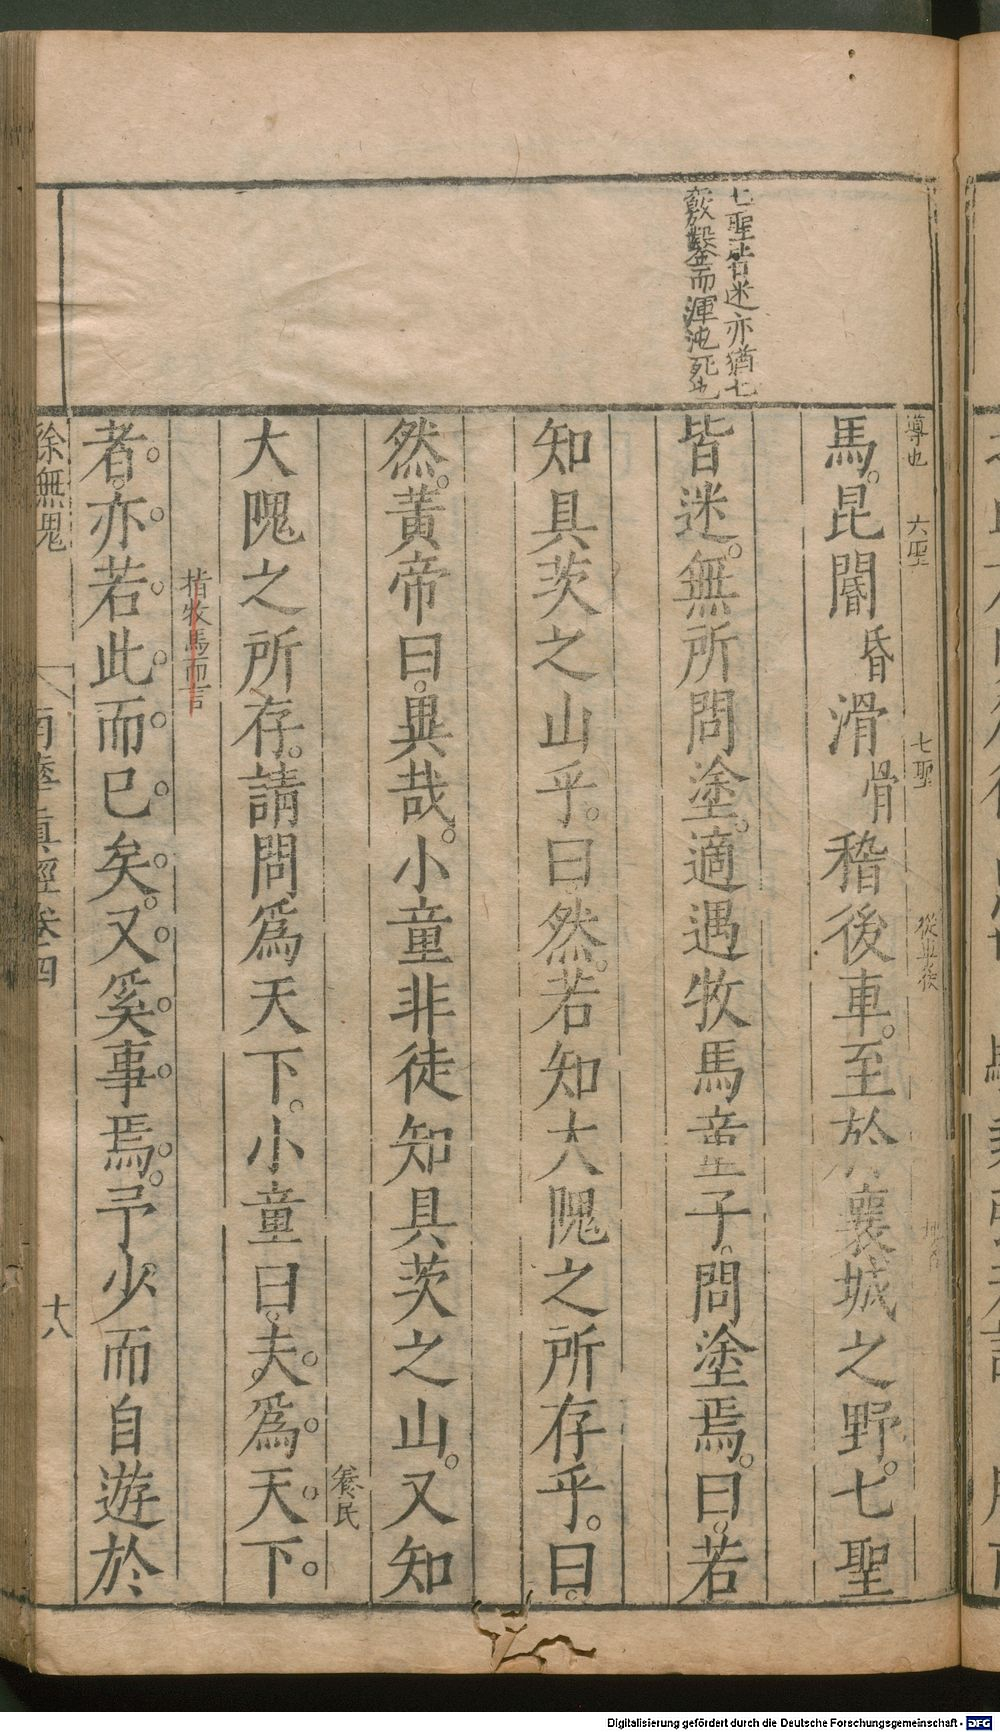 七聖皆迷亦猶七
竅鑿而渾沌死也
導也
六聖
七聖
從車後
馬。昆閽昏滑骨稽後車。至於襄城之野。七聖
皆迷。無所問塗。適遇牧馬童子。問塗焉。曰。若
知具茨之山乎。曰。然。若知大隗之所存乎。曰。
然。黃帝曰。異哉。小童非徒知具茨之山。又知
養民
大隗之所存。請問爲天下。小童曰。夫爲天下。
指牧馬而言
者。亦若此而已矣。又奚事焉。予少而自遊於
徐無鬼
南華真經卷四
十八
Digitalisierung gefördert durch die Deutsche Forschungsgemeinschaft - DFG